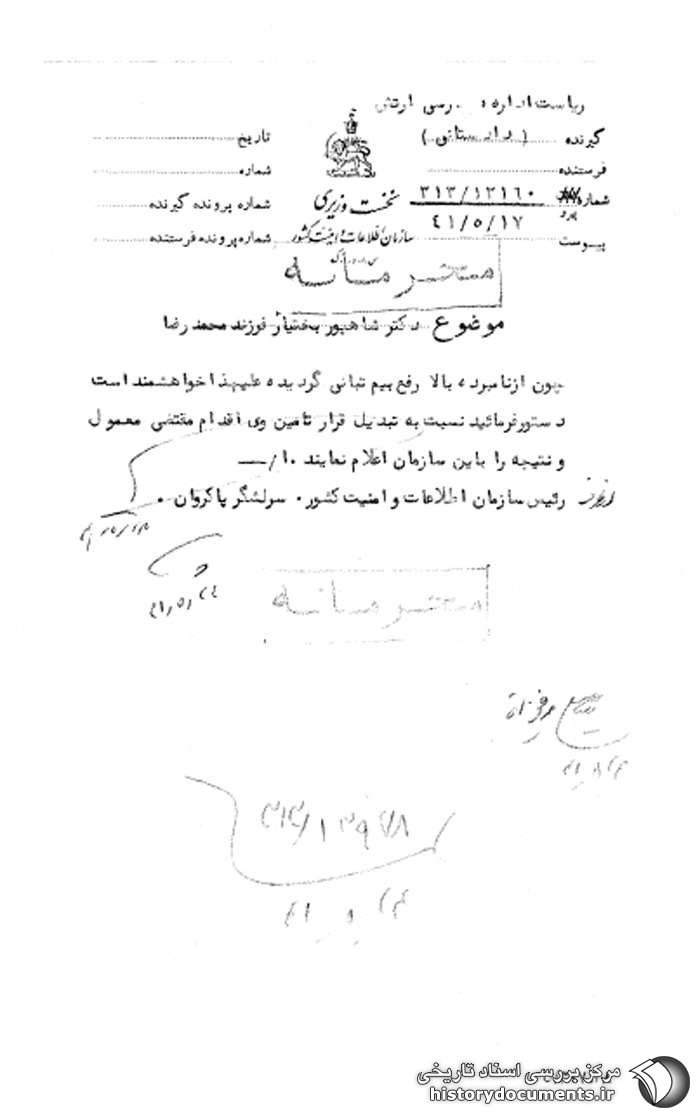 ریاست اداره دادرسی ارتش
گیرنده (دادستانی)
فرستنده
شماره ۳۱۳/۱۳۱۶۰
۴۱/۵/۱۷
پیوست
نخست وزیری
سازمان اطلاعات و امنیت کشور
تاریخ
شماره
شماره پرونده گیرنده
شماره پرونده فرستنده
محرمانه
موضوع دکتر شاهپور بختیار فرزند محمد رضا
چون از نامبرده بالا رفع بیم تبانی گردیده علیهذا خواهشمند است
دستور فرمائید نسبت به تبدیل قرار تامین وی اقدام مقتضی معمول
و نتیجه را باین سازمان اعلام نمایند
رئیس سازمان اطلاعات و امنیت کشور. سرلشگر پاکروان.
محرمانه
مرکز بررسی اسناد تاریخی
historydocuments.ir